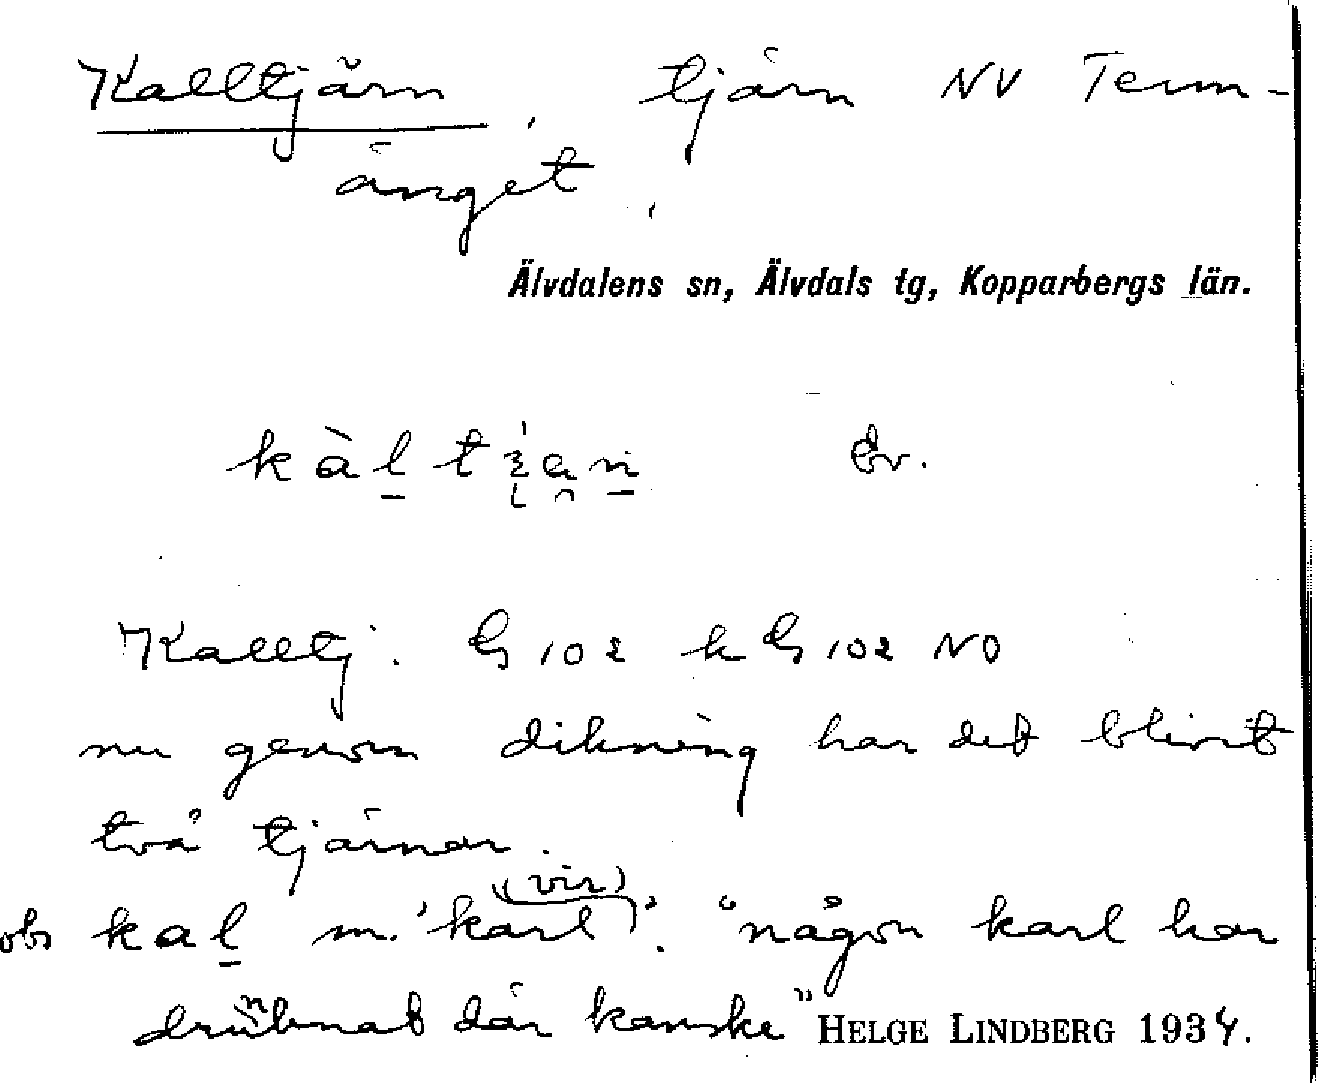 Kalltjärn, tjärn NV Tenn-
änget,
Älvdalens sn, Älvdals tg, Kopparbergs län.
Kalltj. G 102 k G 102 NO
nu genom dikning har det blivit
två tjärnar.
(vir)
obs kal m. 'karl'. "någon karl har
drunknat där kanske" HELGE LINDBERG 1934.